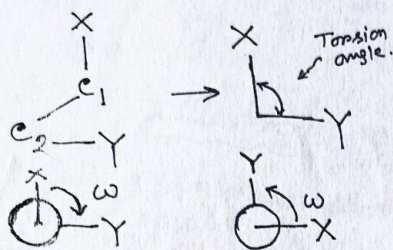 X
C1
C2 Y
X
Torsion
angle.
Y
X ω
Y
Y
ω
X